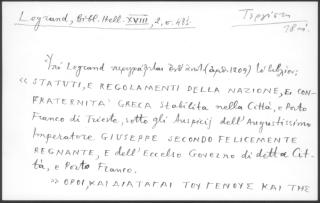 Legrand, Bibl. Hell. XVIII, 2, σ. 481.
Τεργέστη
18 αἰ.
Ὑπὸ Legrand περιγράφεται (ἀρ. 1209) τὸ βιβλίον:
« STATUTI, E REGOLAMENTI DELLA NAZIONE, E CON-
FRATERNITA' GRECA stabilita nella Città, e Porto
Franco di Trieste, sotto gli Auspicj dell'Augustissimo
Imperatore GIUSEPPE SECONDO FELICEMENTE
REGNANTE, E dell'Eccelso Governo di detta Cit-
tà, e Porto Franco.
» ΟΡΟΙ, ΚΑΙ ΔΙΑΤΑΓΑΙ ΤΟΥ ΓΕΝΟΥΣ ΚΑΙ ΤΗΣ